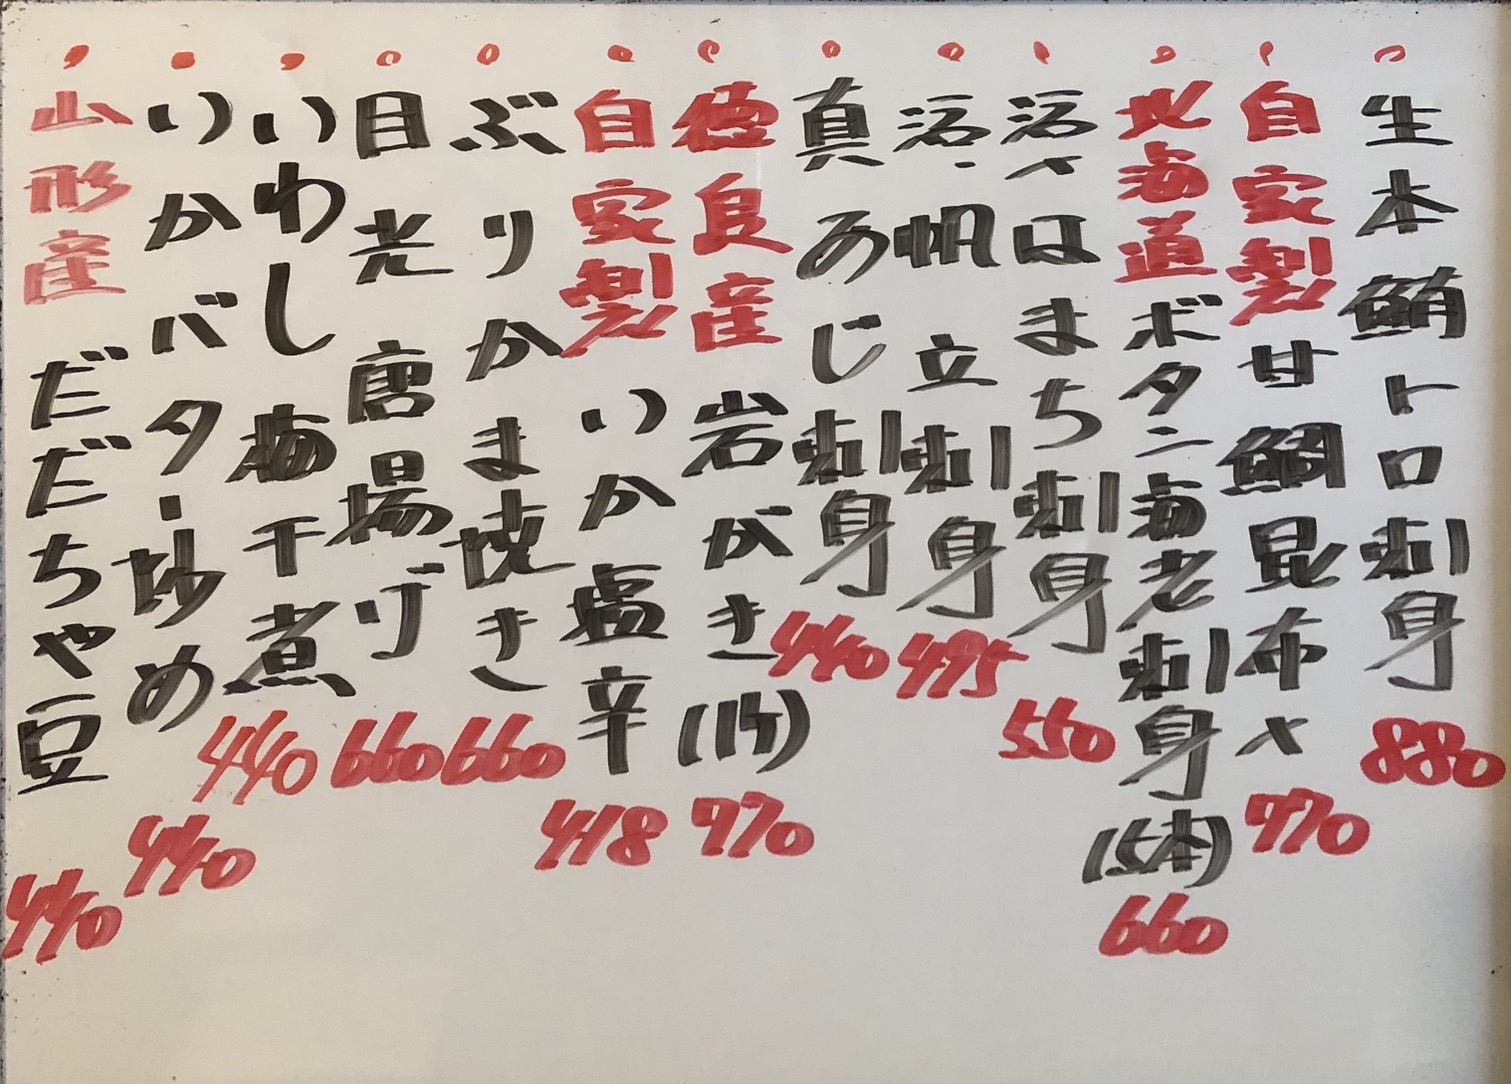 生本鮪トロ刺身 880
自家製甘鯛昆布〆 770
北海道ボタン海老刺身(5本) 660
活〆はまち刺身 550
活帆立刺身 495
真あじ刺身 440
徳良産岩がき(1ケ) 770
自家製いか塩辛 418
ぶりかま焼き 660
目光唐揚げ 660
いわし梅干煮 440
いかバター炒め 440
山形産だだちゃ豆 440